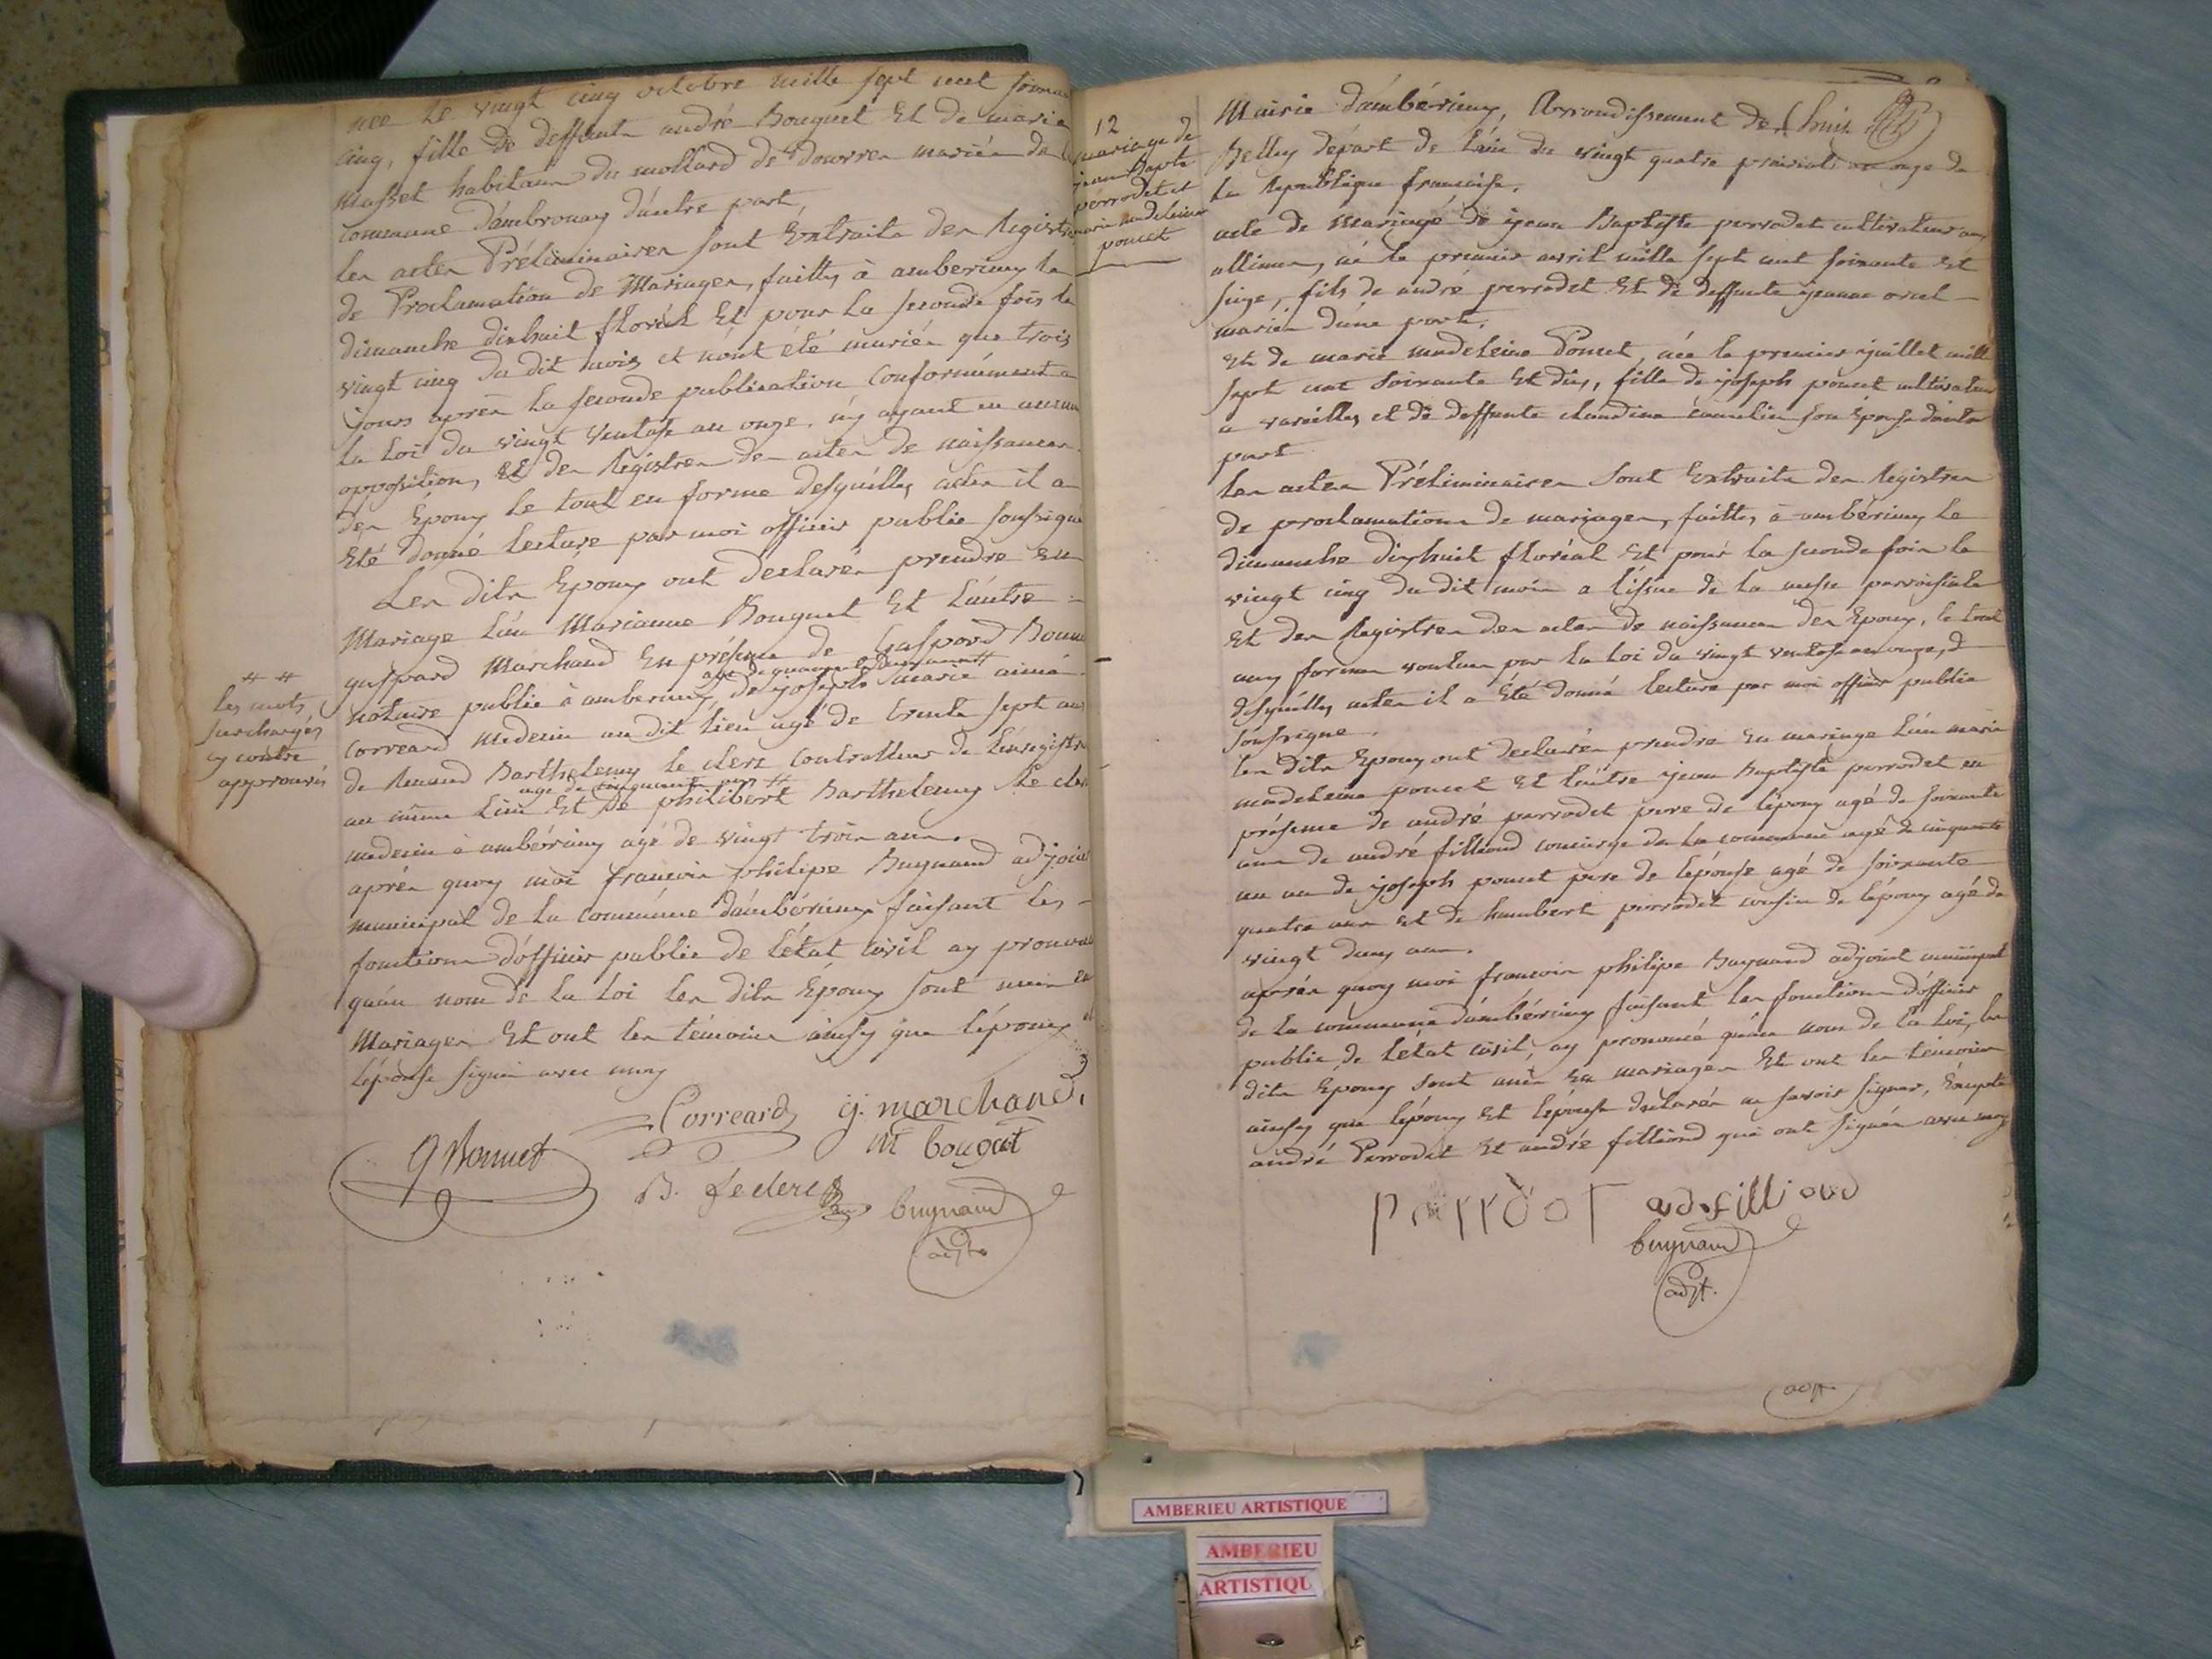 née le vingt cinq octobre mille sept cent soixante
cinq, fille de deffunts andré Bouguet Et de marie
Masset habitans du mollard de douvren mariés de la
commune d'ambronay d'autre part,
les actes Préliminaires sont Extraits des Registres
de Proclamation de Mariages, faittes à amberieux le
dimanche dixhuit floréal Et pour la seconde fois le
vingt cinq du dit mois et n'ont été mariés que trois
jours après la seconde publication Conformément a
la Loi du vingt Ventose an onze, n'y ayant eu aucune
opposition, Et des Régistres des actes de naissances
des Epoux le tout en forme desquelles actes il a
Eté donné lecture par moi officier public soussigné
Les dits Epoux ont declarés prendre En
Mariage L'un Marianne Bouguet Et L'autre
guspard Marchand En présence de Gaspard Bonnet
agé de quarante
notaire public à amberieux, de joseph marie aimé
Correard Medecin au dit lieu agé de trente sept ans
de Renaud Barthelemy le clerc Controlleur de l'enregistre
agé de cinquante ans #
au même Lieu Et de philibert Barthelemy Le clerc
medecin à ambérieux agé de vingt trois ans.
après quoy moi francois philipe Bugnand adjoint
municipal de la commune d'ambérieux faisant les
fonctions d'officier public de l'état civil ay prononcé
qu'au nom de la Loi les dits Epoux sont unis en
Mariages Et ont les témoins ainsy que l'époux et
l'épouse signés avec moy
# #
les mots
surchargés
cy contre
approuvés
Correard g. marchand
G Bonnet M bouguet
B. Leclerc bugnand
adjt
12
mariage de
jean Bapte
perrodet et
marie madeleine
poncet
Mairie d'ambérieux, Arrondissement de
Belley départ de L'ain du vingt quatre prairial an onze de
la République francaise.
acte de Mariage de jean Baptiste perrodet cultivateur aux
allimes, né le premier avril mille sept cent soixante Et
seize, fils de andré perrodet Et de deffunte jeanne orsel
mariés d'une part,
Et de marie madeleine Poncet, née le premier juillet mille
sept cent soixante Et dix, fille de joseph poncet cultivateur
a vareilles et de deffunte claudine son Epouse d'autre
part
les actes Préliminaires sont Extraits des Registres
de proclamations de mariages, faittes à ambérieux le
dimanche dixhuit floréal Et pour la seconde fois le
vingt cinq du dit mois a l'issue de la messe parroissiale
Et des Registres des actes de naissances des Epoux, le tout
aux formes voulues par la Loi du vingt ventose an onze, d
desquelles actes il a Eté donné lecture par moi officier public
soussigné.
les dits Epoux ont declarés prendre En mariage L'un marie
madeleine poncet Et L'autre jean Baptiste perrodet en
présence de andré perrodet pere de l'époux agé de soixante
ans de andré filliond concierge de la commune agé de cinquante
un an de joseph poncet pere de l'épouse agé de soixante
quatre ans Et de humbert perrodet cousin de l'époux agé de
vingt deux ans.
après quoy moi francois philipe Bugnand adjoint municipal
de la commune d'ambérieux faisant les fonctions d'officier
public de l'état civil, ay prononcé qu'au nom de la Loi, les
dits Epoux sont unis En mariages Et ont les témoins
ainsy que l'époux Et l'épouse declarés ne savoir signer, Excepté
andré Perrodet Et andré filliond qui ont signés avec moy
Parrdot ad filliond
bugnand
adjt.
adjt
AMBERIEU ARTISTIQUE
AMBERIEU
ARTISTIQU